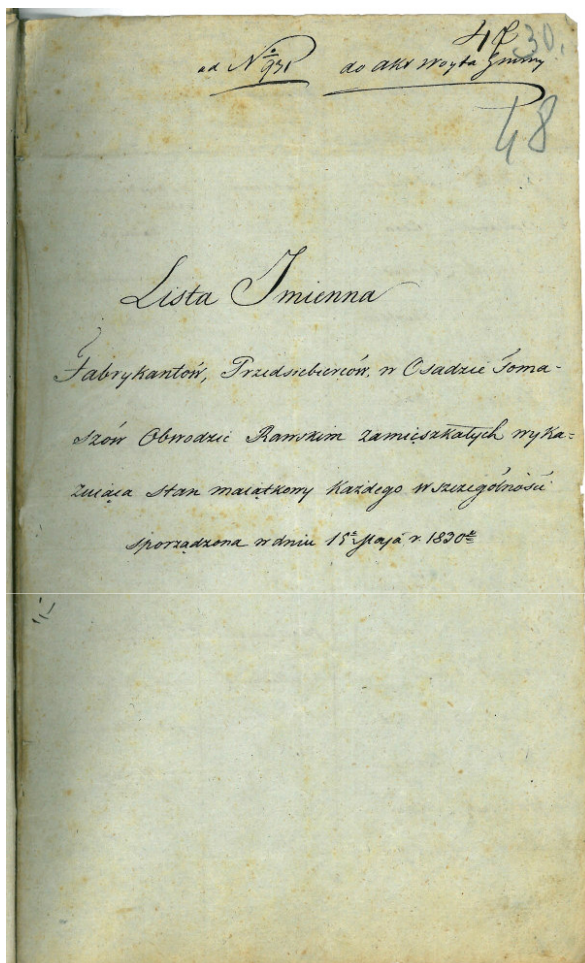 48 30.
ad No 931 do Akt Woyta Gminy
48
Lista Imienna
Fabrykantów, Przedsiebierców, w Osadzie Toma-
szów Obwodzie Rawskim zamięszkałych wyka=
zuiąca stan maiątkowy każdego w szczególności
sporządzona w dniu 15º Maja r 1830º